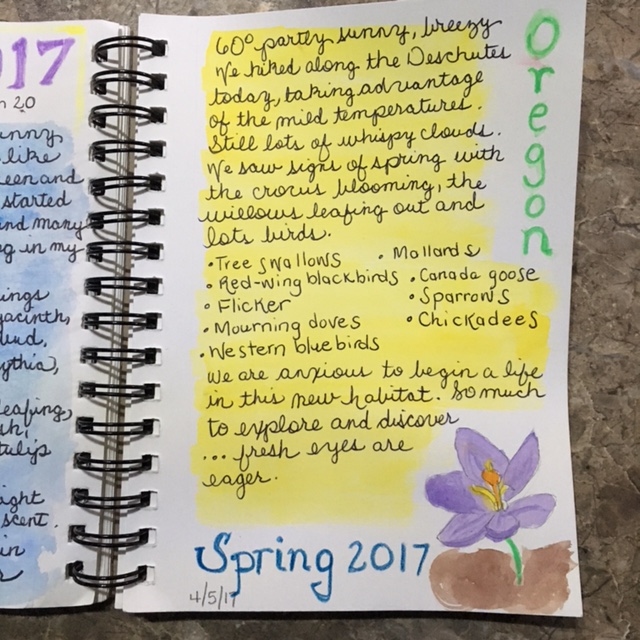 017
20
unny
like
een and
started
nd many
g in my
ings
yacinth,
ythia),
eafing,
tulip
ight
scent.
in
60° partly sunny, breezy
We hiked along the Deschutes
today, taking advantage
of the mild temperatures.
Still lots of whispy clouds.
We saw signs of spring with
the crocus blooming, the
willows leafing out and
lots birds.
• Tree swallows
• Red-wing blackbirds
• Flicker
• Mourning doves
• Western bluebirds
• Mallards
• Canada goose
• Sparrows
• Chickadees
We are anxious to begin a life
in this new habitat. So much
to explore and discover
... fresh eyes are
eager.
Spring 2017
4/5/17
Oregon